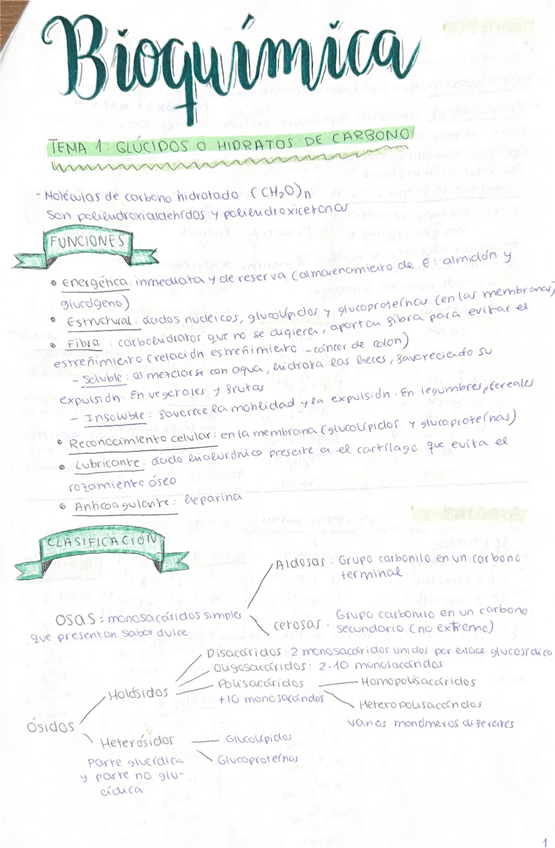 Bioquímica
TEMA 1: GLÚCIDOS O HIDRATOS DE CARBONO
- Moléculas de carbono hidratado (CH₂O)n
Son polihidroxialdehídos y polihidroxicetonas
FUNCIONES
• Energética: inmediata y de reserva (almacenamiento de E: almidón y
glucógeno)
• Estructural: ácidos nucleicos, glucolípidos y glucoproteínas (en las membranas)
• Fibra: carbohidratos que no se digieren, aportan fibra para evitar el
estreñimiento (relación estreñimiento - cáncer de colon)
- Soluble: al mezclarse con agua, hidrata las heces, favoreciendo su
expulsión. En vegetales y frutas
- Insoluble: favorece la motilidad y la expulsión. En legumbres, cereales
• Reconocimiento celular: en la membrana (glucolípidos y glucoproteínas)
• Lubricante: ácido hialurónico presente en el cartílago que evita el
rozamiento óseo
• Anticoagulante: heparina
CLASIFICACIÓN
Aldosas: Grupo carbonilo en un carbono
terminal
OSAS: monosacáridos simples
que presentan sabor dulce
cetosas: Grupo carbonilo en un carbono
secundario (no extremo)
Disacáridos: 2 monosacáridos unidos por enlace glucosídico
Oligosacáridos: 2-10 monosacáridos
Holósidos
Polisacáridos
+10 monosacáridos
Homopolisacáridos
Heteropolisacáridos
varios monómeros diferentes
Ósidos
Heterósidos
Parte glucídica
y parte no glu-
cídica
Glucolípidos
Glucoproteínas
1